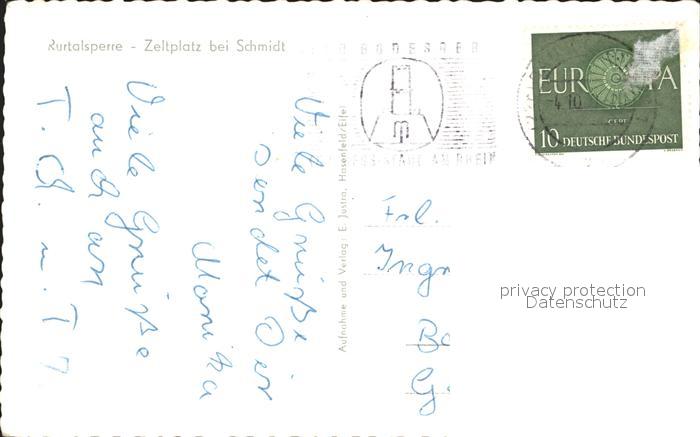 Rurtalsperre - Zeltplatz bei Schmidt
Viele Grüße
sendet Dir
Monika
Viele Grüße
auch an
T.
Aufnahme und Verlag: E. Justra, Hasenfeld/Eifel
AM RHEIN
4.10
EUROPA
CEPT
10 DEUTSCHE BUNDESPOST
Frl.
Ingr
privacy protection
Datenschutz